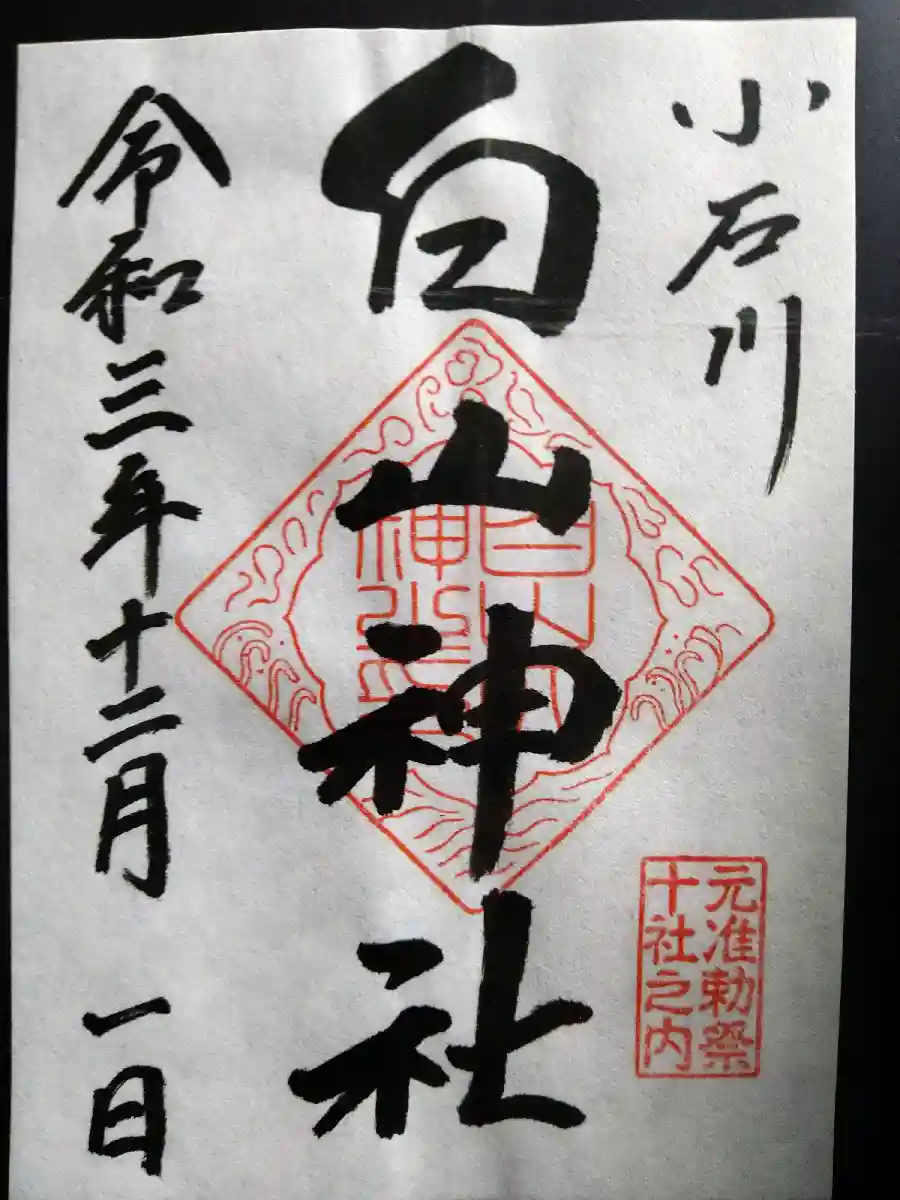 小石川
白山神社
令和三年十二月 一日
白山
神社
元准勅祭
十社之内